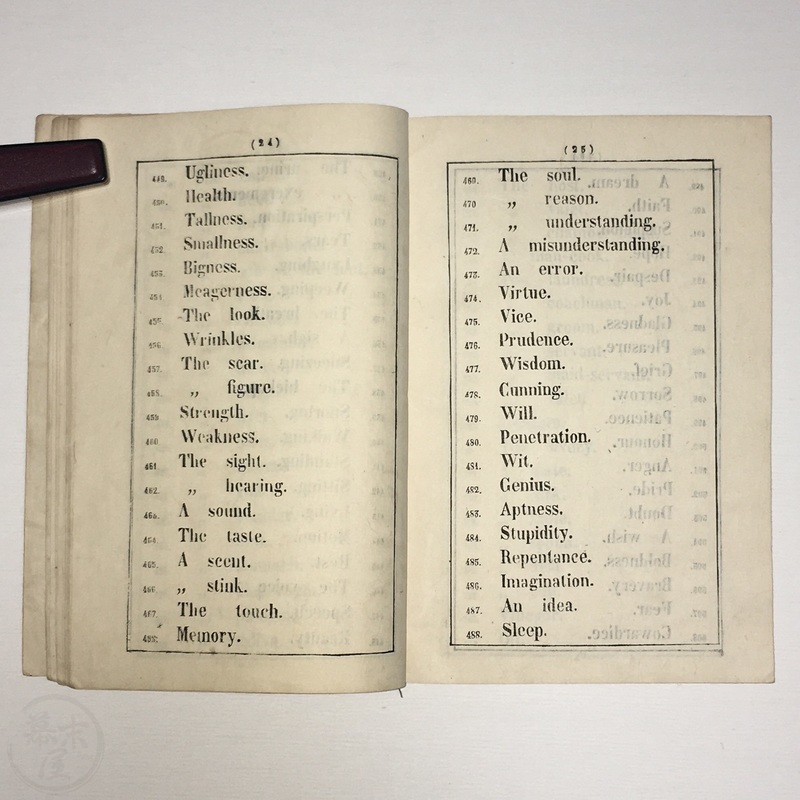 (24)
449. Ugliness.
450. Health.
451. Tallness.
452. Smallness.
453. Bigness.
454 Meagerness.
455. The look.
456. Wrinkles.
457. The scar.
458. „ figure.
459 Strength.
460 Weakness.
461 The sight.
462. „ hearing.
463. A sound.
464. The taste.
465. A scent.
466. „ stink.
467. The touch.
468. Memory.
(25)
469. The soul.
470 „ reason.
471. „ understanding.
472. A misunderstanding.
473. An error.
474. Virtue.
475. Vice.
476. Prudence.
477. Wisdom.
478. Cunning.
479. Will.
480. Penetration.
481. Wit.
482. Genius.
483. Aptness.
484. Stupidity.
485. Repentance.
486. Imagination.
487. An idea.
488. Sleep.